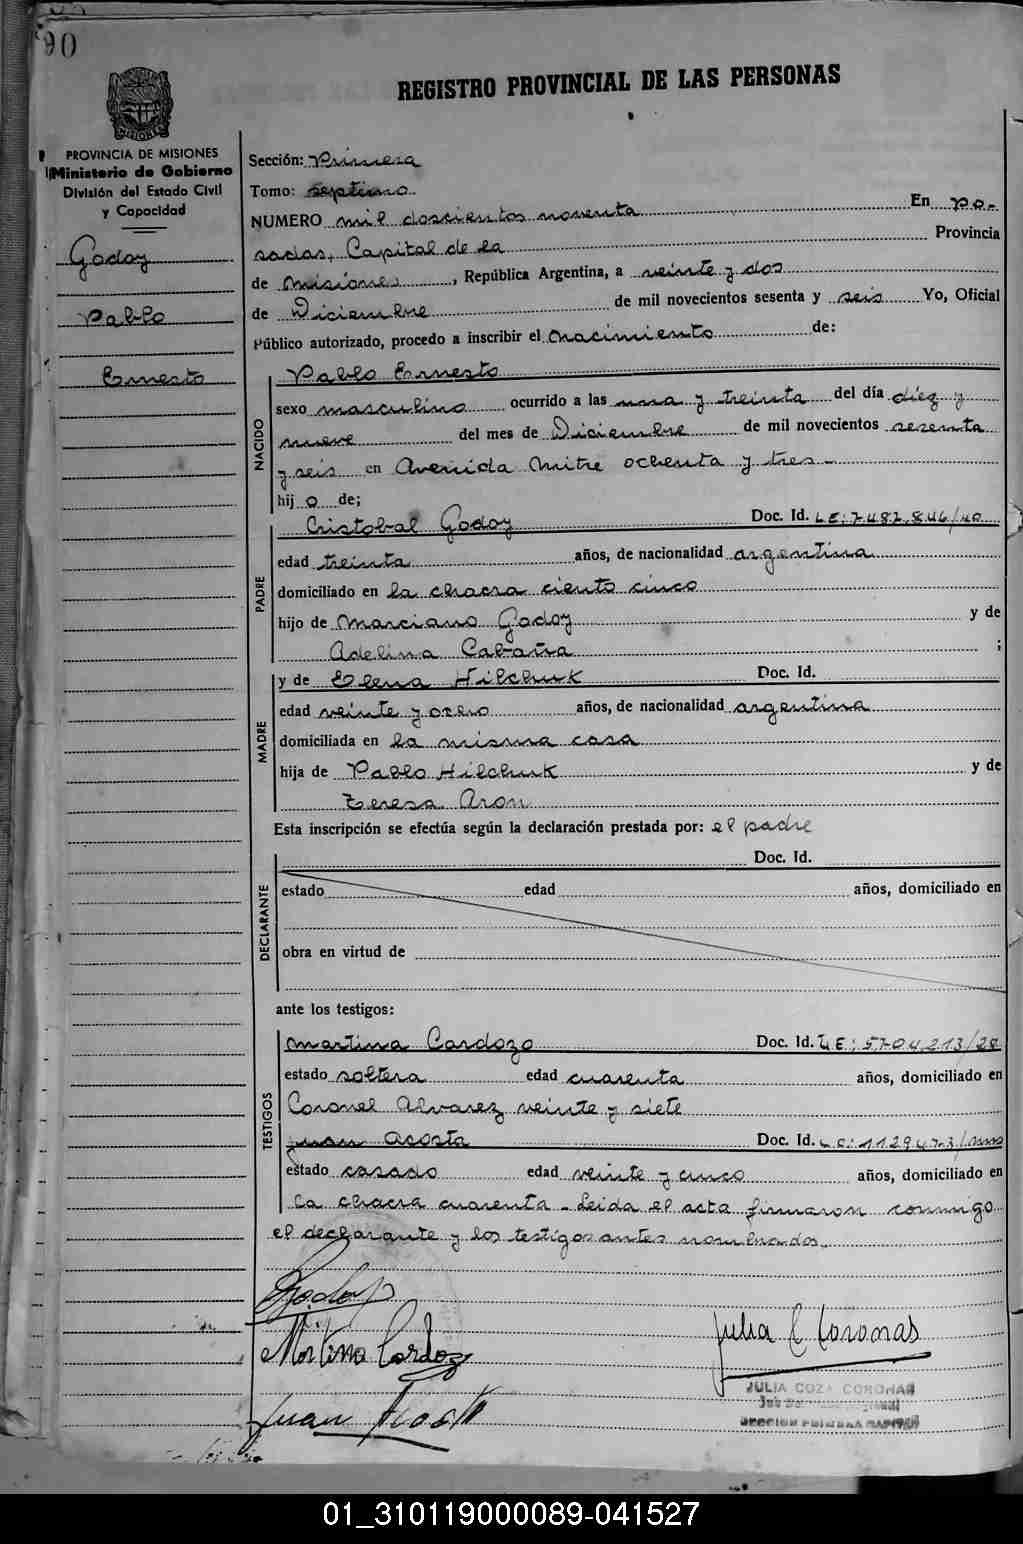 90
REGISTRO PROVINCIAL DE LAS PERSONAS
MISIONES
PROVINCIA DE MISIONES
Ministerio de Gobierno
División del Estado Civil
y Capacidad
Godoy
Pablo
Ernesto
Sección: Primera
Tomo: septimo
NUMERO mil doscientos noventa En Po-
sadas, Capital de la Provincia
de Misiones, República Argentina, a veinte y dos
de Diciembre de mil novecientos sesenta y seis Yo, Oficial
Público autorizado, procedo a inscribir el nacimiento de:
NACIDO
Pablo Ernesto
sexo masculino ocurrido a las una y treinta del día diez y
nueve del mes de Diciembre de mil novecientos sesenta
y seis en Avenida Mitre ochenta y tres -
hij o de;
PADRE
Cristobal Godoy Doc. Id. LE: 7.487.846/40
edad treinta años, de nacionalidad argentina
domiciliado en la chacra ciento cinco
hijo de Marciano Godoy y de
Adelina Cabaña ;
MADRE
y de Elena Hilchuk Doc. Id.
edad veinte y ocho años, de nacionalidad argentina
domiciliada en la misma casa
hija de Pablo Hilchuk y de
Teresa Aron
Esta inscripción se efectúa según la declaración prestada por: el padre
DECLARANTE
Doc. Id.
estado edad años, domiciliado en
obra en virtud de
ante los testigos:
TESTIGOS
Martina Cardozo Doc. Id. LE: 5704213/28
estado soltera edad cuarenta años, domiciliado en
Coronel Alvarez veinte y siete
Juan Acosta Doc. Id. 1129473/
estado casado edad veinte y cinco años, domiciliado en
la chacra cuarenta - Leida el acta firmaron conmigo
el declarante y los testigos antes nombrados
Godoy
Martina Cardozo
Julia C Coronas
JULIA COZA CORONAS
SECCION PRIMERA CAPITAL
Juan Acosta
01_310119000089-041527